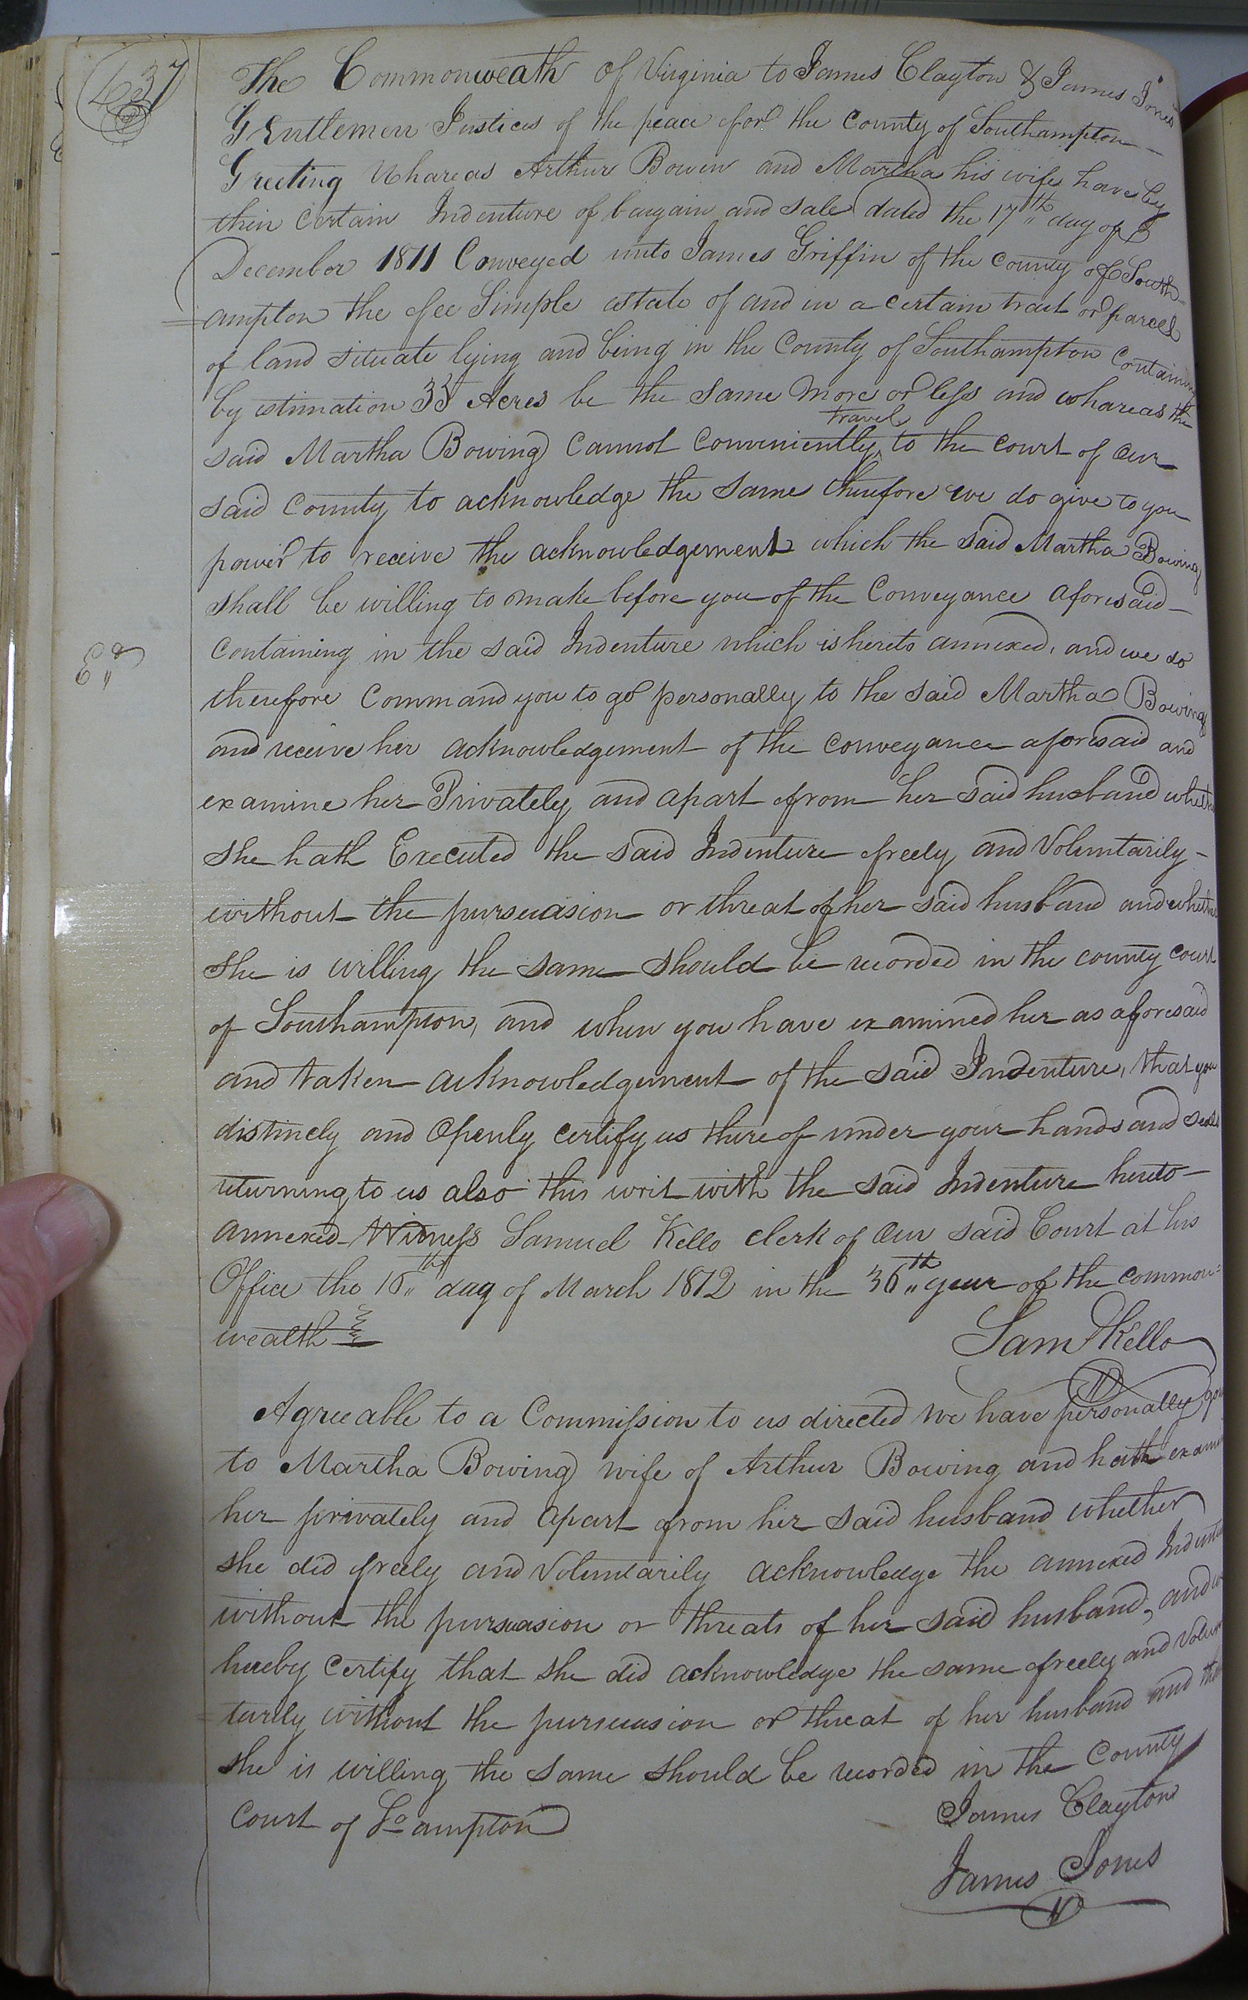 437
The Commonweath of Virginia to James Clayton & James Jones
Gentlemen Justices of the peace for the County of Southampton
Greeting Whareas Arthur Bowin and Martha his wife have by
their certain Indenture of bargain and sale dated the 17th day of
December 1811 Conveyed unto James Griffin of the county of South-
ampton the fee Simple estate of and in a certain tract or parcel
of land situate lying and being in the County of Southampton Containing
by estimation 33 Acres be the same more or less and whareas the
travel
said Martha Bowing cannot conveniently to the court of our
said county to acknowledge the same therefore we do give to you
power to receive the acknowledgement which the said Martha Bowing
shall be willing to make before you of the Conveyance aforesaid
Containing in the said Indenture which is hereto annexed, and we do
Exd
therefore Command you to go personally to the said Martha Bowing
and receive her acknowledgement of the conveyance aforesaid and
examine her Privately and apart from her said husband whether
she hath Executed the said Indenture freely and Voluntarily
without the pursuasion or threat of her said husband and whether
she is willing the same should be recorded in the county court
of Southampton, and when you have examined her as aforesaid
and taken acknowledgement of the said Indenture, that you
distincly and Openly certify us thereof under your hands and seals
returning to us also this writ with the said Indenture hereto
annexed Witness Samuel Kello clerk of Our said Court at his
Office the 16th day of March 1812 in the 36th year of the common=
wealth
Sam Kello
Agreeable to a Commission to us directed We have personally gone
to Martha Bowing wife of Arthur Bowing and hath exam
her privately and apart from her said husband whether
she did freely and Voluntarily acknowledge the annexed Indentu
without the pursuasion or threats of her said husband, and we
hereby certify that she did acknowledge the same freely and Volun
tarily without the pursuasion or threat of her husband and that
she is willing the same should be recorded in the County
Court of So ampton
James Clayton
James Jones